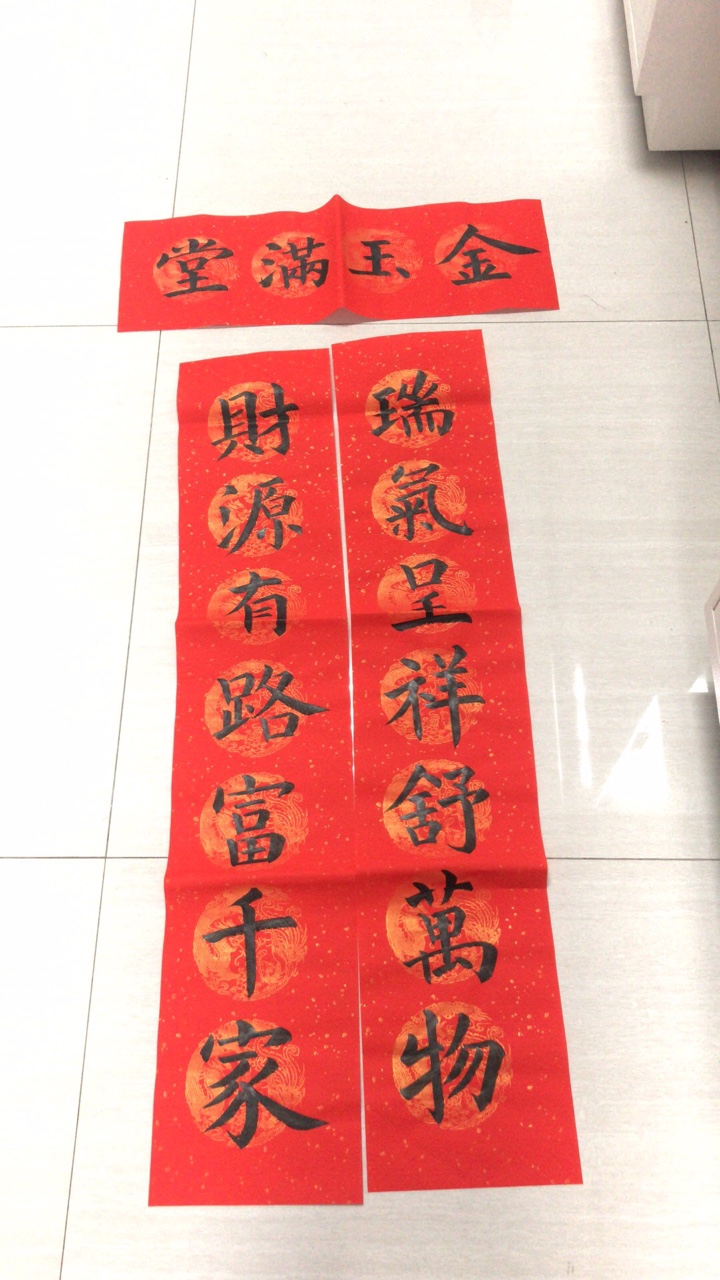 金玉滿堂
瑞氣呈祥舒萬物
財源有路富千家